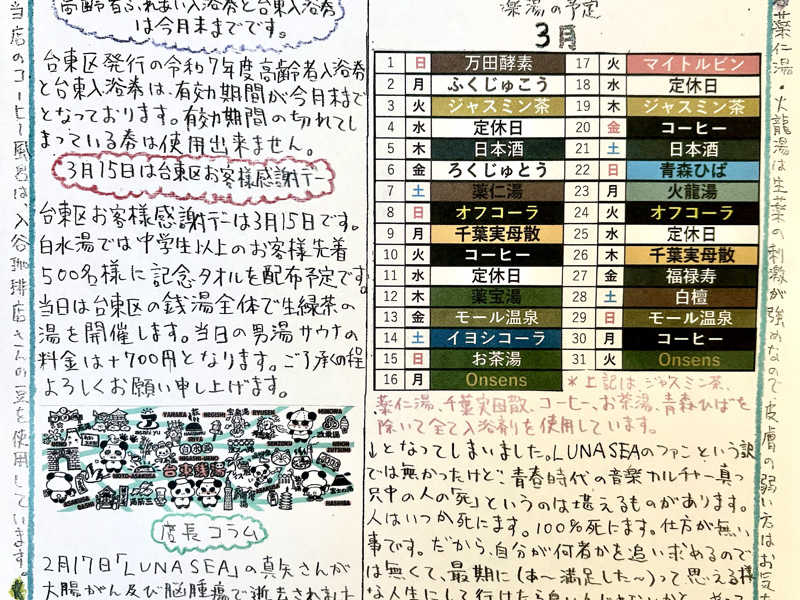 高齢者ふれあい入浴券と台東入浴券
は今月末までです。
台東区発行の令和7年度高齢者入浴券
と台東入浴券は、有効期間が今月末まで
となっております。有効期間の切れてし
まっている券は使用出来ません。
3月15日は台東区お客様感謝デー
台東区お客様感謝デーは3月15日です。
白水湯では中学生以上のお客様先着
500名様に記念タオルを配布予定です。
当日は台東区の銭湯全体で生緑茶の
湯を開催します。当日の男湯サウナの
料金は+700円となります。ご了承の程
よろしくお願い申し上げます。
YANAKA
NEGISHI
RYUSEN
MINOWA
IRIYA
SENZOKU
NIHON
ZUTSUMI
UENO
MOTO-ASAKUSA
台東銭湯
ASAKUSA
BASHI
HASHIBA
店長コラム
2月17日「LUNA SEA」の真矢さんが
大腸がん及び脳腫瘍で逝去されました
薬湯の予定
3月
1 日 万田酵素
2 月 ふくじゅこう
3 火 ジャスミン茶
4 水 定休日
5 木 日本酒
6 金 ろくじゅとう
7 土 薬仁湯
8 日 オフコーラ
9 月 千葉実母散
10 火 コーヒー
11 水 定休日
12 木 薬宝湯
13 金 モール温泉
14 土 イヨシコーラ
15 日 お茶湯
16 月 Onsens
17 火 マイトルビン
18 水 定休日
19 木 ジャスミン茶
20 金 コーヒー
21 土 日本酒
22 日 青森ひば
23 月 火龍湯
24 火 オフコーラ
25 水 定休日
26 木 千葉実母散
27 金 福禄寿
28 土 白檀
29 日 モール温泉
30 月 コーヒー
31 火 Onsens
*上記は、ジャスミン茶、
薬仁湯、千葉実母散、コーヒー、お茶湯、青森ひばを
除いて全て入浴剤を使用しています。
↓となってしまいました。LUNA SEAのファンという訳
では無かったけど、青春時代の音楽カルチャー真っ
只中の人の「死」というのは堪えるものがあります。
人はいつか死にます。100%死にます。仕方が無い
事です。だから、自分が何者かを追い求めるので
は無くて、最期に(あ〜満足した〜)って思える様
当店のコーヒー風呂は、入谷珈琲店さんの豆を使用しています。
薬仁湯・火龍湯は生薬の刺激が強めなので皮膚の弱い方はお気を